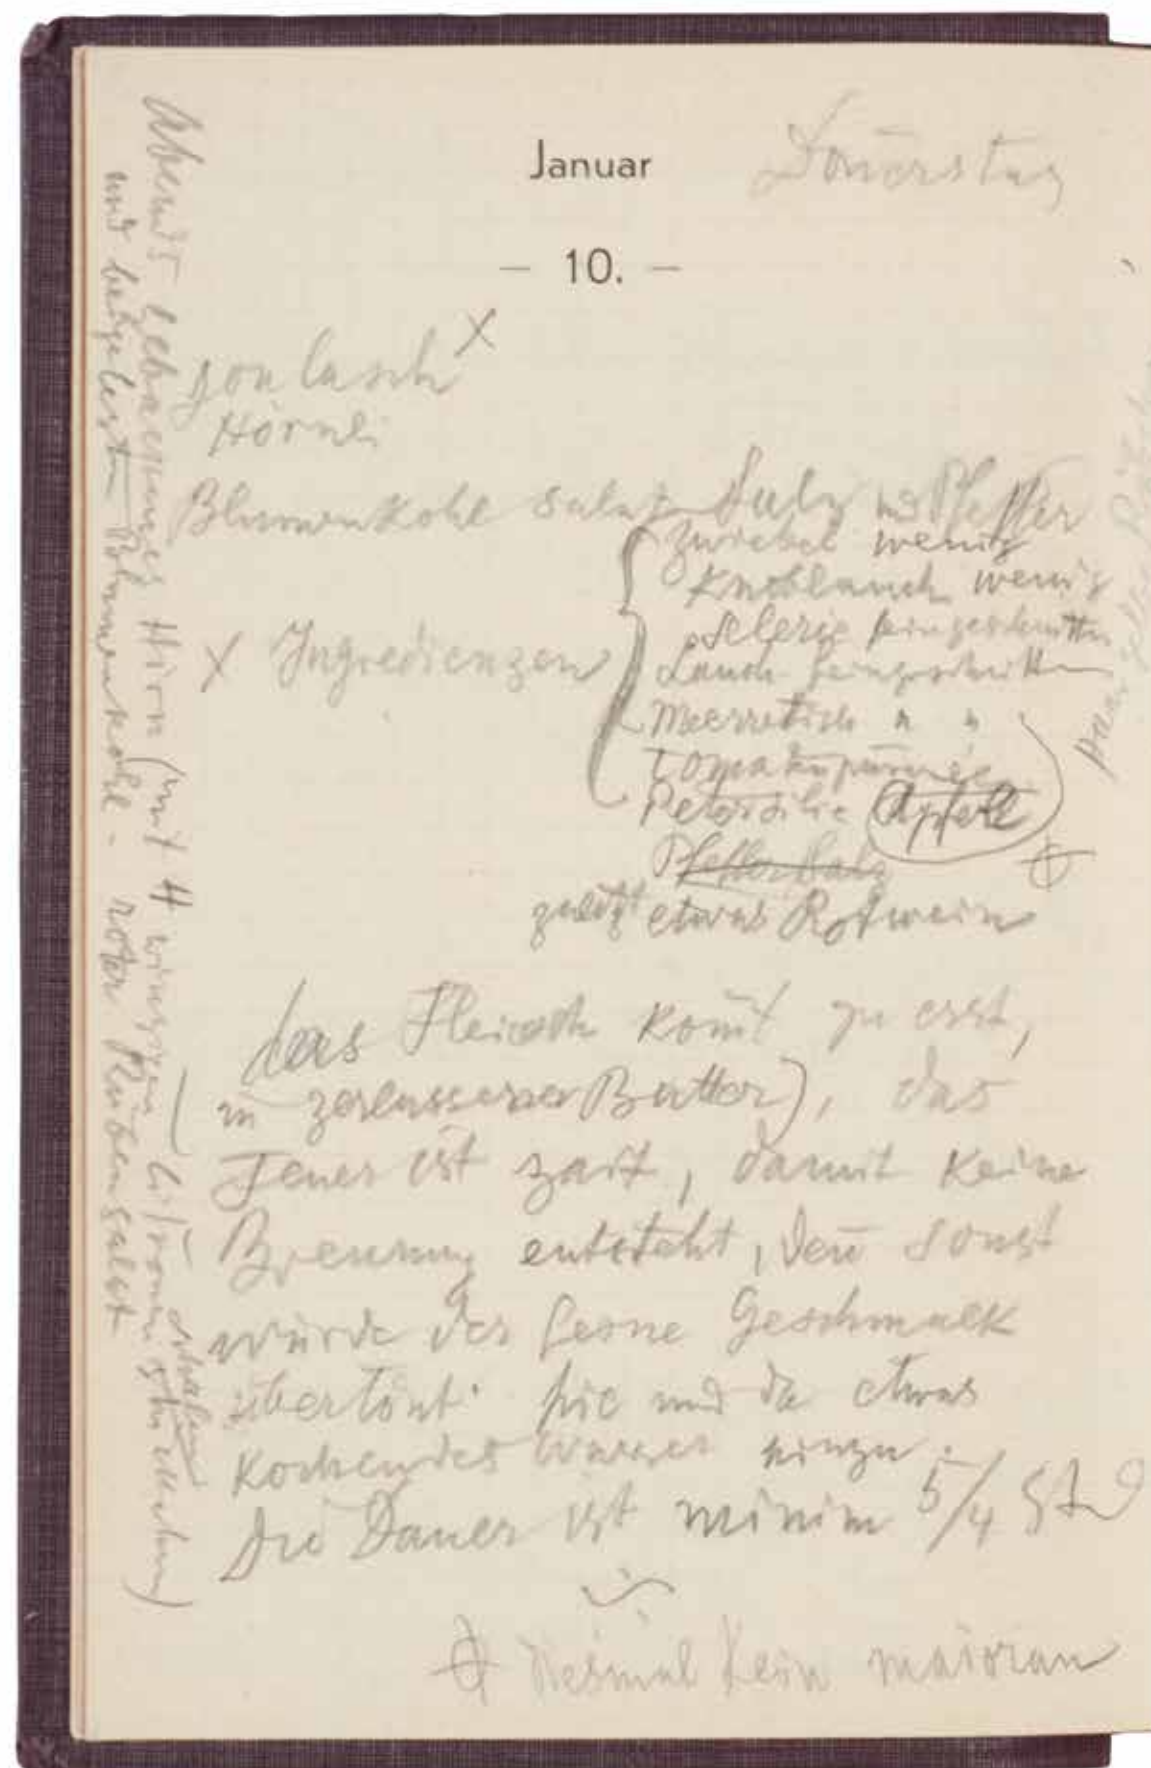 Januar
Donerstag
— 10. —
goulasch X
Hörnli
Blumenkohl salat Sulz und Pfeffer
Zwiebel wenig
Knoblauch wenig
X Ingredienzen
Sellerie feingeschnitten
Lauch feingeschnitten
Meerretich " "
Tomatupurrée
Petersilie Apfel
Pfeffer Salz
zuletzt etwas Rotwein
das Fleisch komt zu erst,
(in zerlassener Butter), das
Feuer ist zart, damit keine
Brennung entsteht, den sonst
würde der feine Geschmack
übertönt. hie und da etwas
kochendes Wasser hinzu.
Die Dauer ist minim 5/4 Std
diesmal kein maioran
Abends gebackenes Hirn (mit 4 winzigen
und beigelegten Blumenkohl - roter Rübensalat